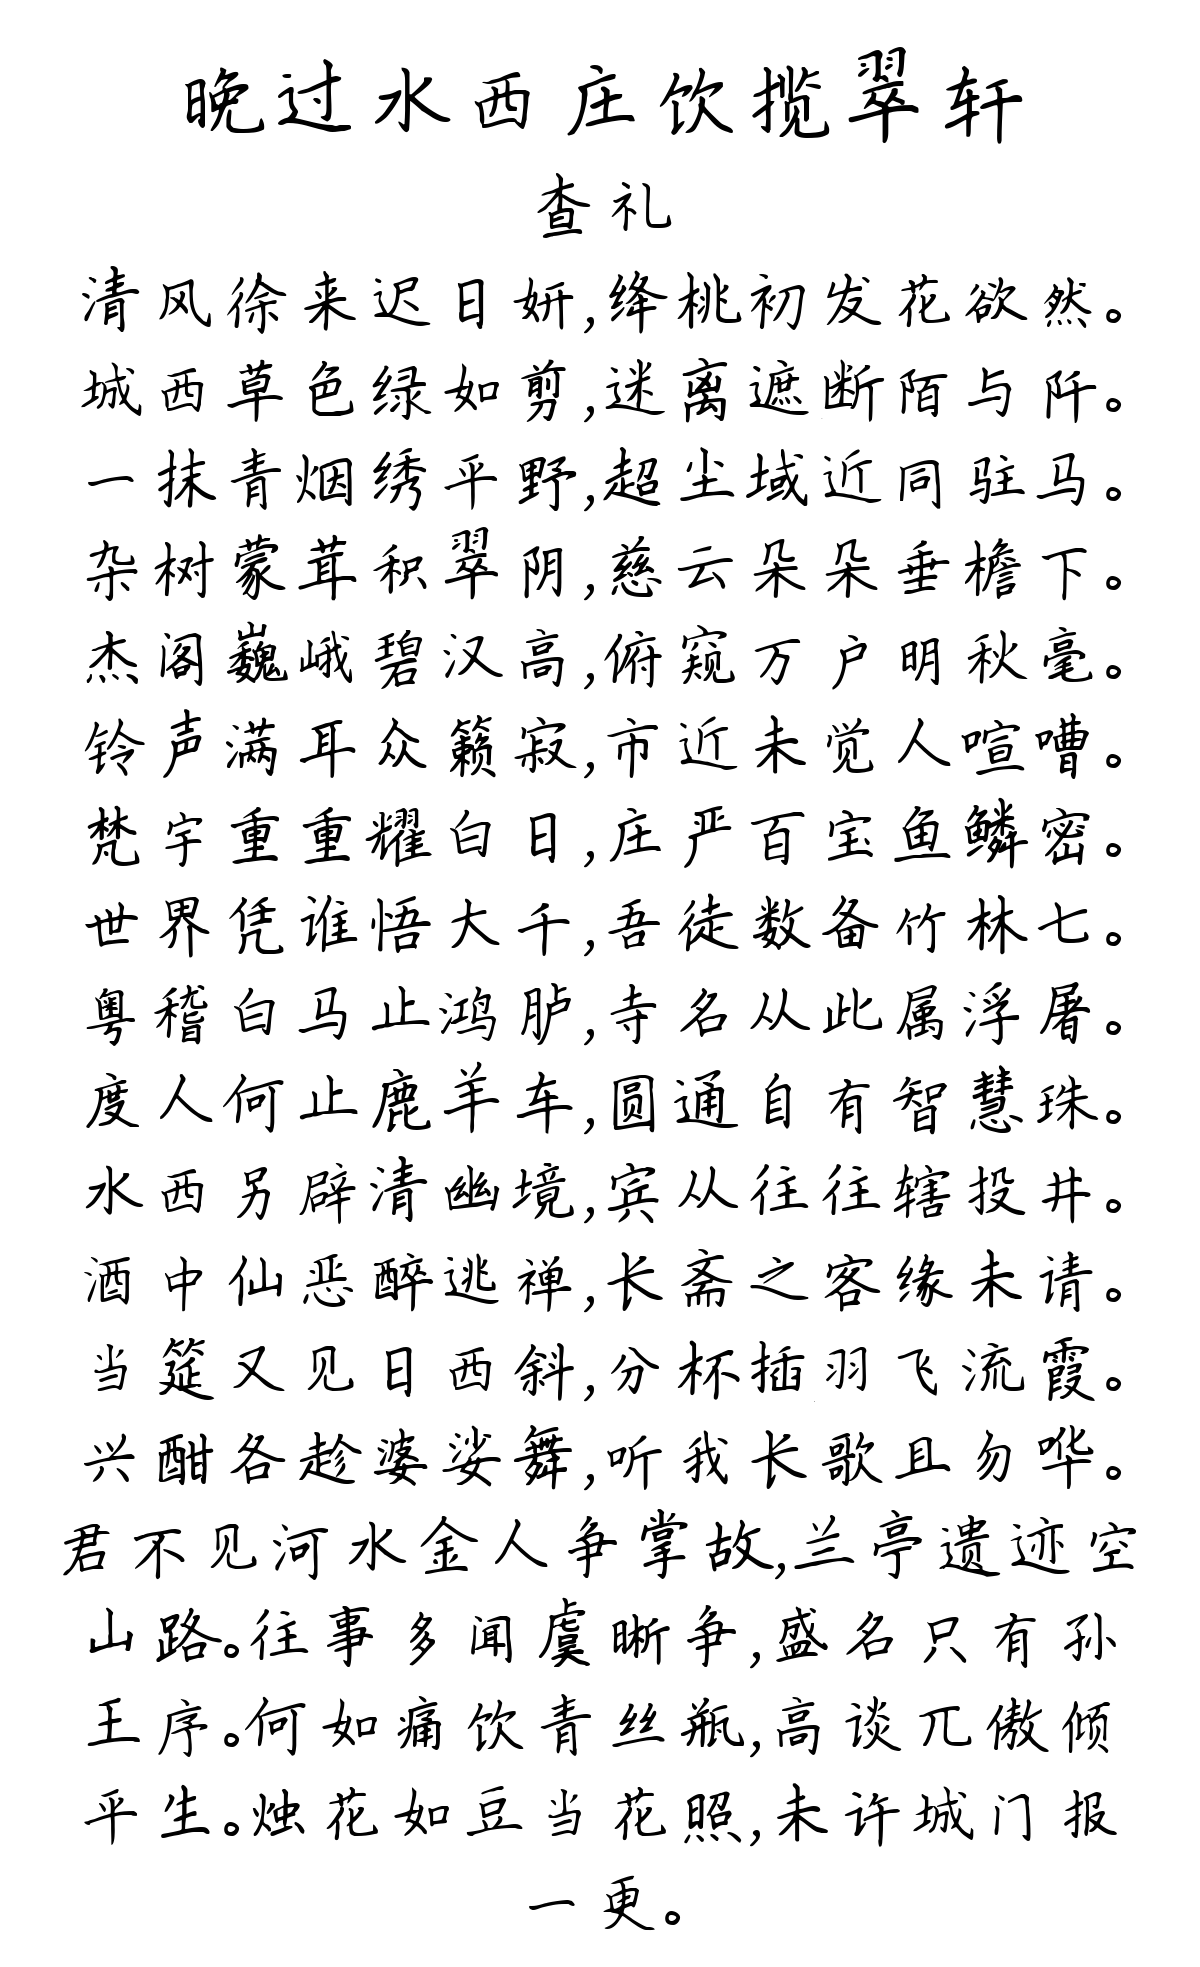 晚过水西庄饮揽翠轩
查礼
清风徐来迟日妍,绛桃初发花欲然。
城西草色绿如剪,迷离遮断陌与阡。
一抹青烟绣平野,超尘域近同驻马。
杂树蒙茸积翠阴,慈云朵朵垂檐下。
杰阁巍峨碧汉高,俯窥万户明秋毫。
铃声满耳众籁寂,市近未觉人喧嘈。
梵宇重重耀白日,庄严百宝鱼鳞密。
世界凭谁悟大千,吾徒数备竹林七。
粤稽白马止鸿胪,寺名从此属浮屠。
度人何止鹿羊车,圆通自有智慧珠。
水西另辟清幽境,宾从往往辖投井。
酒中仙恶醉逃禅,长斋之客缘未请。
当筵又见日西斜,分杯插羽飞流霞。
兴酣各趁婆娑舞,听我长歌且勿哗。
君不见河水金人争掌故,兰亭遗迹空
山路。往事多闻虞晰争,盛名只有孙
王序。何如痛饮青丝瓶,高谈兀傲倾
平生。烛花如豆当花照,未许城门报
一更。